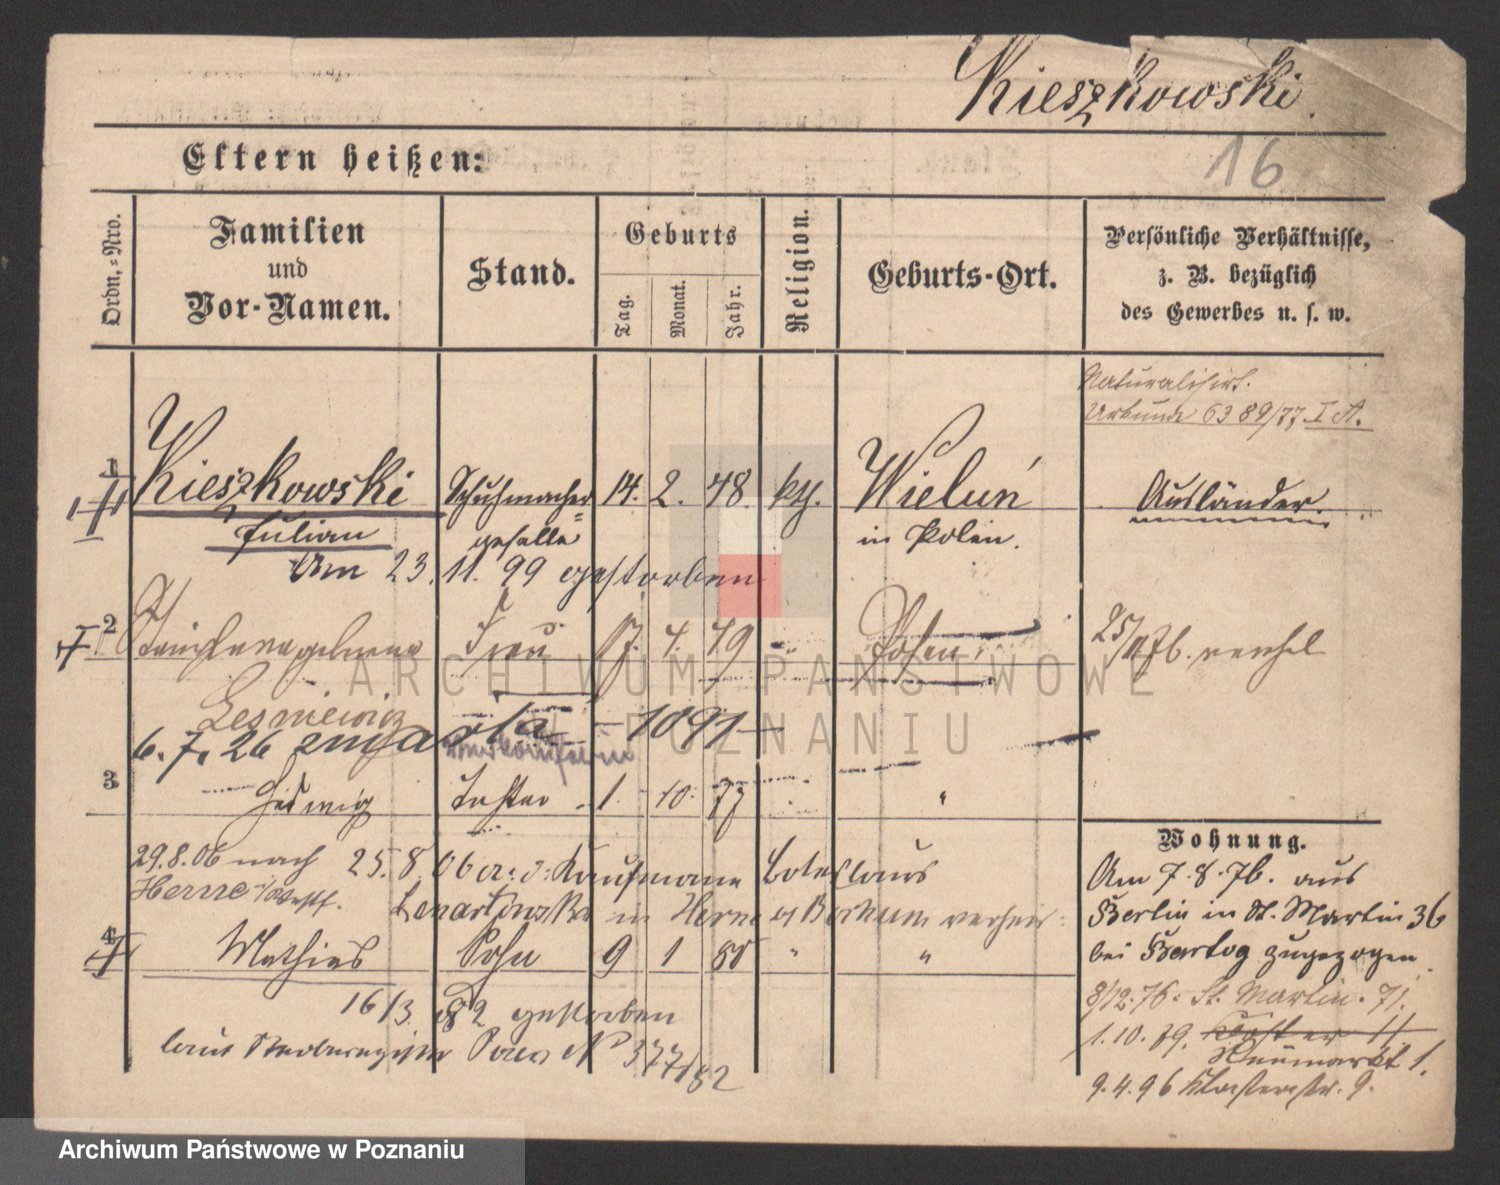 Kieszkowski.
16
Eltern heißen:
Ordn.-Nro.
Familien
und
Vor-Namen.
Stand.
Geburts
Tag.
Monat.
Jahr.
Religion.
Geburts-Ort.
Persönliche Verhältnisse,
z. B. bezüglich
des Gewerbes u. s. w.
Naturalisirt.
Urkunde 6389/77 I A.
1 Kieszkowski Schuhmacher= 14. 2. 48. kth. Wieluń Ausländer.
Julian geselle in Polen.
Am 23. 11. 99 gestorben
2 geborene Frau 17. 4. 49 Posen 25/
Lesniewicz
6. 7. 26 zmarła 1091
3 Hedwig Tochter 1. 10. 77 "
29.8.06 nach 25. 8. 06 Kaufmann Boleslaus
Herne i/Westf. Lenartowski in Herne Bochum
4 Mathias Sohn 9 1 80 " "
16/3 82 gestorben
laut Sterberegister Posen No 377/82
Wohnung.
Am 7. 8. 76. aus
Berlin in St. Martin 36
bei Hartog zugezogen.
8/12. 76. St. Martin. 71.
1. 10. 79. Kloster 11
Neumarkt 1.
9. 4. 96 Klosterstr. 9.
ARCHIWUM PAŃSTWOWE
W POZNANIU
Archiwum Państwowe w Poznaniu